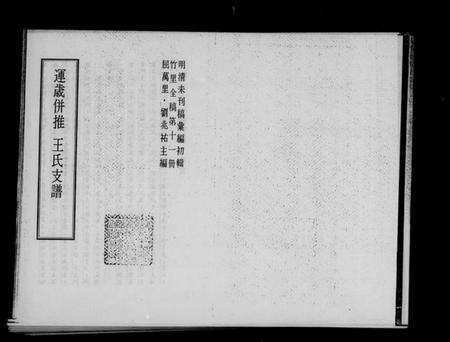 明清未刊稿彙編初輯
竹里全稿第十一冊
屈萬里・劉兆祐主編
運歲併推 王氏支譜